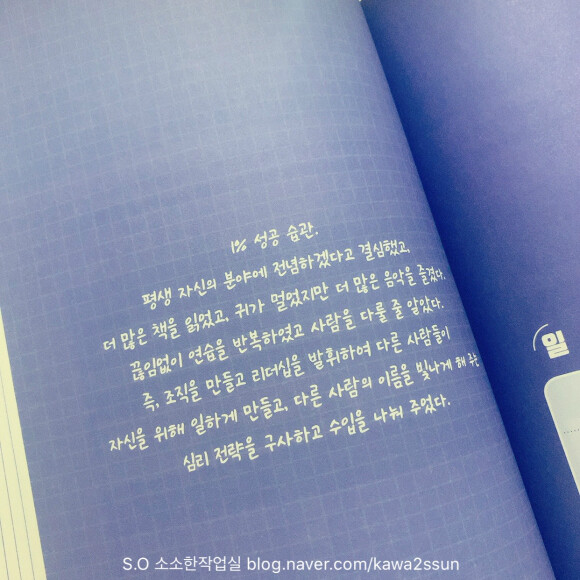 1% 성공 습관.
평생 자신의 분야에 전념하겠다고 결심했고,
더 많은 책을 읽었고, 귀가 멀었지만 더 많은 음악을 즐겼다.
끊임없이 연습을 반복하였고 사람을 다룰 줄 알았다.
즉, 조직을 만들고 리더십을 발휘하여 다른 사람들이
자신을 위해 일하게 만들고, 다른 사람의 이름을 빛나게 해 주는
심리 전략을 구사하고 수입을 나눠 주었다.
일
S.O 소소한작업실 blog.naver.com/kawa2ssun